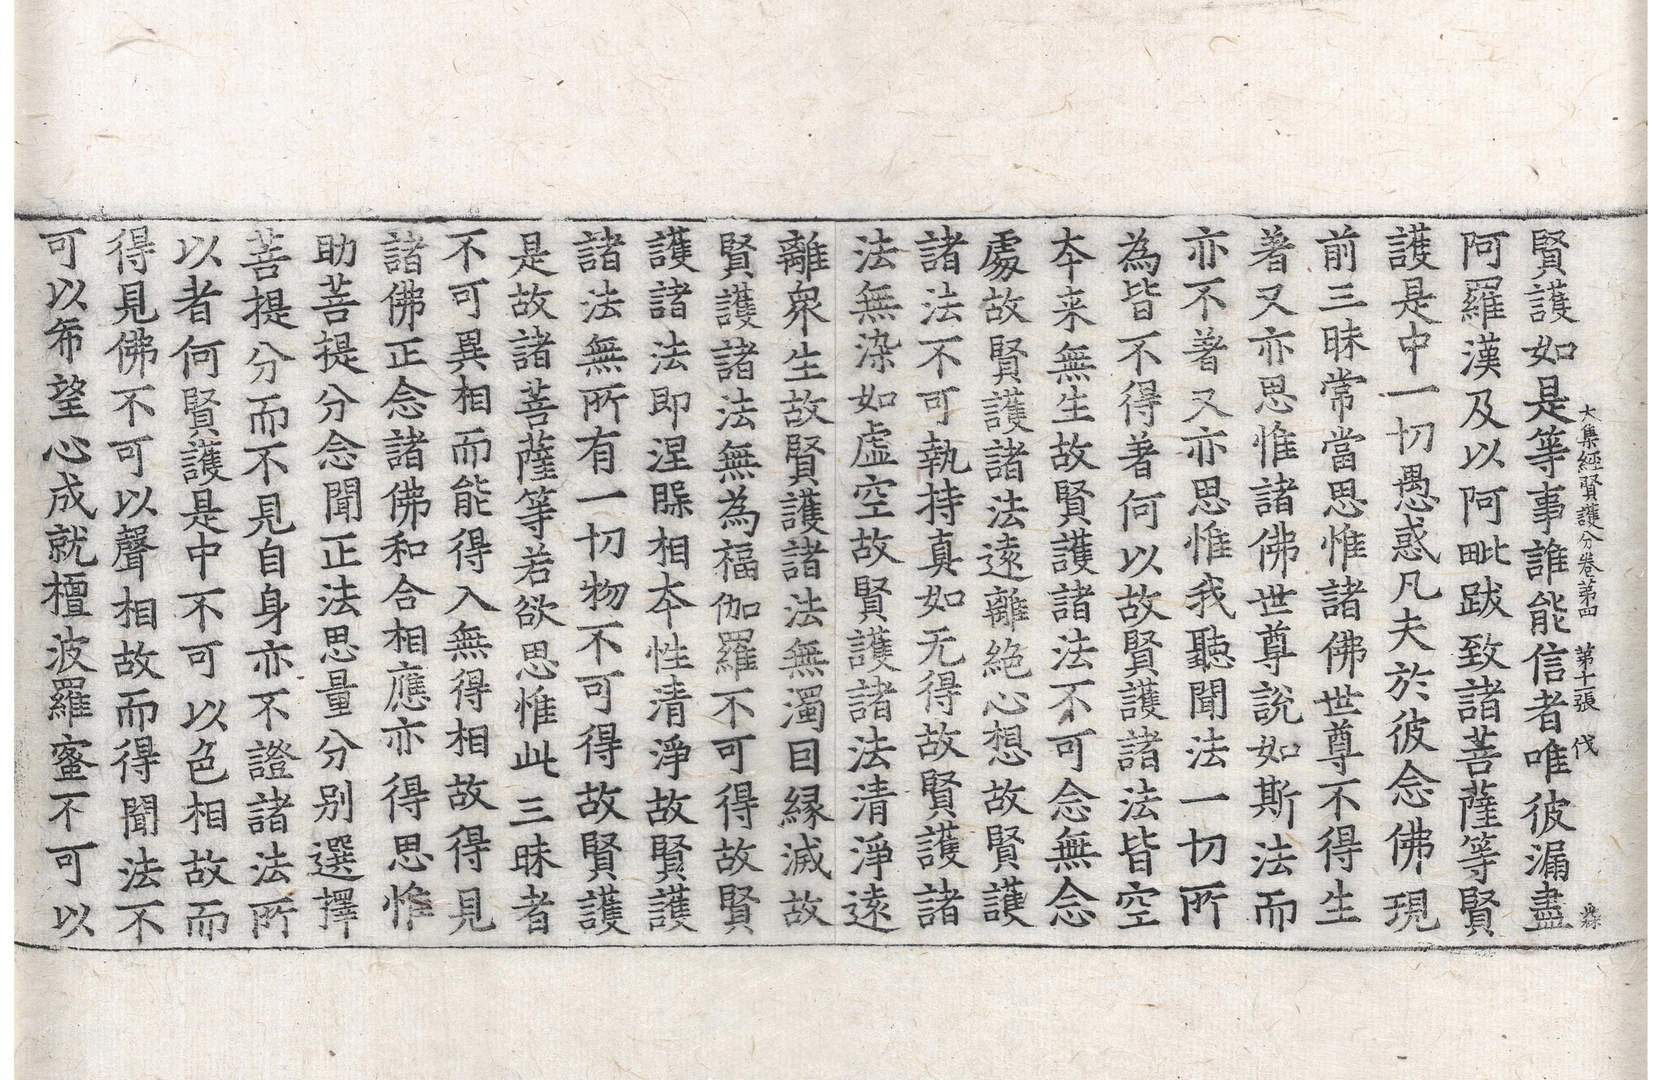 大集經賢護分卷第四　第十張　伐
賢護如是等事誰能信者唯彼漏盡
阿羅漢及以阿毗跋致諸菩薩等賢
護是中一切愚惑凡夫於彼念佛現
前三昧常當思惟諸佛世尊不得生
著又亦思惟諸佛世尊說如斯法而
亦不著又亦思惟我聽聞法一切所
為皆不得著何以故賢護諸法皆空
夲来無生故賢護諸法不可念無念
處故賢護諸法遠離絶心想故賢護
諸法不可執持真如无得故賢護諸
法無染如虛空故賢護諸法清淨遠
離衆生故賢護諸法無濁因縁滅故
賢護諸法無為福伽羅不可得故賢
護諸法即涅槃相夲性清淨故賢護
諸法無所有一切物不可得故賢護
是故諸菩薩等若欲思惟此三昧者
不可異相而能得入無得相故得見
諸佛正念諸佛和合相應亦得思惟
助菩提分念聞正法思量分別選擇
菩提分而不見自身亦不證諸法所
以者何賢護是中不可以色相故而
得見佛不可以聲相故而得聞法不
可以希望心成就檀波羅蜜不可以